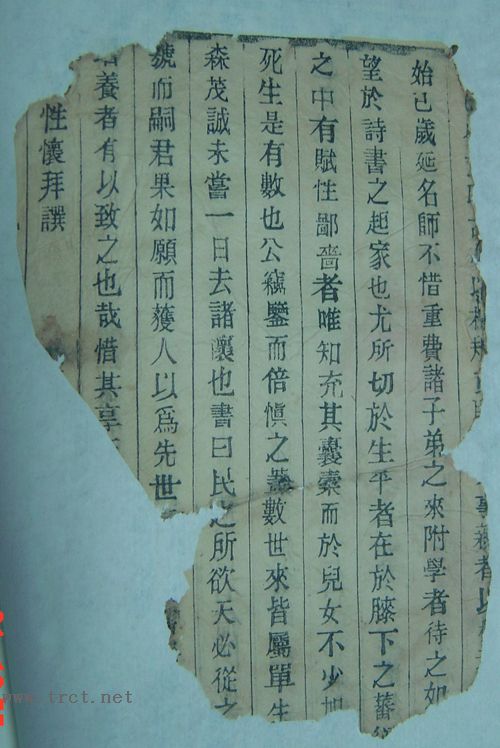 事親者以
始已歲延名師不惜重費諸子弟之來附學者待之如
望於詩書之起家也尤所切於生平者在於膝下之蕃
之中有賦性鄙嗇者唯知充其囊橐而於兒女不少
死生是有數也公竊鑒而倍慎之蓋數世來皆屬單生
森茂誠未嘗一日去諸懷也書曰民之所欲天必從之
號而嗣君果如願而獲人以為先世
培養者有以致之也哉惜其享
性懷拜譔
www.trct.net